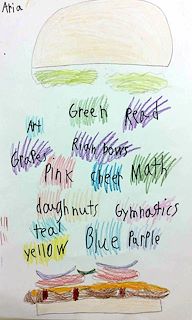 Aria
Green Read
Art
Grapes Rign bows
Pink cheer Math
doughnuts Gymnastics
teal
yellow Blue Purple